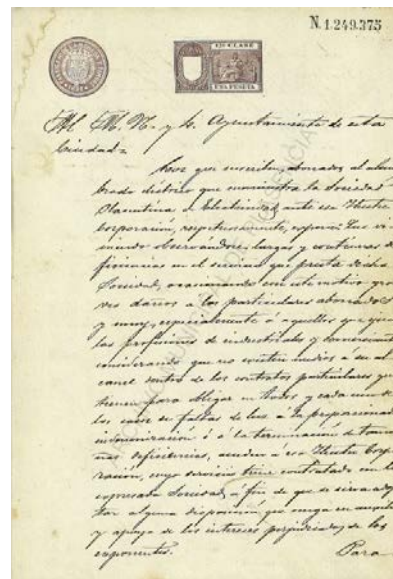 N. 1.249.375
11ª CLASE
UNA PESETA
Al M. N. y L. Ayuntamiento de esta
Ciudad=
Los que suscriben, abonados al alum-
brado eléctrico que suministra la Sociedad
Placentina de Electricidad, ante esa Ilustre
Corporación, respetuosamente, exponen: Que vi-
niendo observandose largas y continuas de-
ficiencias en el servicio que presta dicha
Sociedad, ocasionando con este motivo gra-
ves daños a los particulares abonados
y muy especialmente á aquellos que ejercen
las profesiones de industriales y comerciantes
considerando que no existen medios a su al-
cance dentro de los contratos particulares que
tienen para obligar en todos y cada uno de
los casos de faltas de luz á la proporcionada
indemnización ó á la terminación de tama-
ñas deficiencias, acuden a esa Ilustre Corpo-
ración, cuyo servicio tiene contratado con la
expresada Sociedad, á fin de que se sirva adop-
tar alguna disposición que venga en auxilio
y apoyo de los intereses perjudicados de los
exponentes.
Para